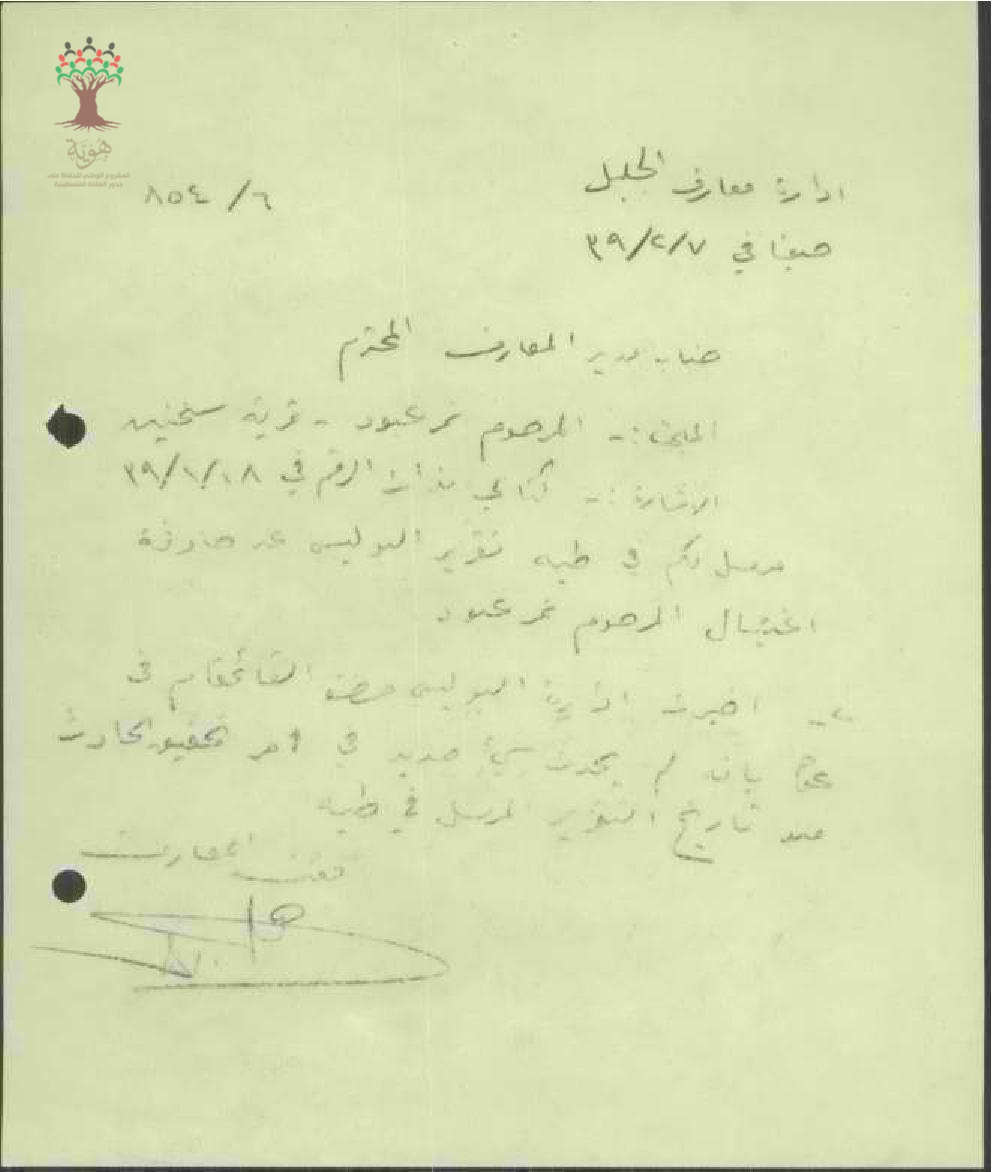 هوية
المشروع الوطني للحفاظ على
جذور العائلة الفلسطينية
ادارة معارف الجليل
٨٥٤ /٦
حيفا في ٣٩/٢/٧
جناب مدير المعارف المحترم
:- المرحوم نمر عبود - قرية سخنين
الاشارة :- كتابي بذات الرقم في ٣٩/١/١٨
مرسل لكم في طيه تقرير البوليس عن حادثة
اغتيال المرحوم نمر عبود
٢- اخبرت ادارة البوليس حضرة القائمقام في
عكا بانه لم يحدث شيء جديد في امر تحقيق الحادث
منذ تاريخ التقرير المرسل في طيه
مفتش المعارف